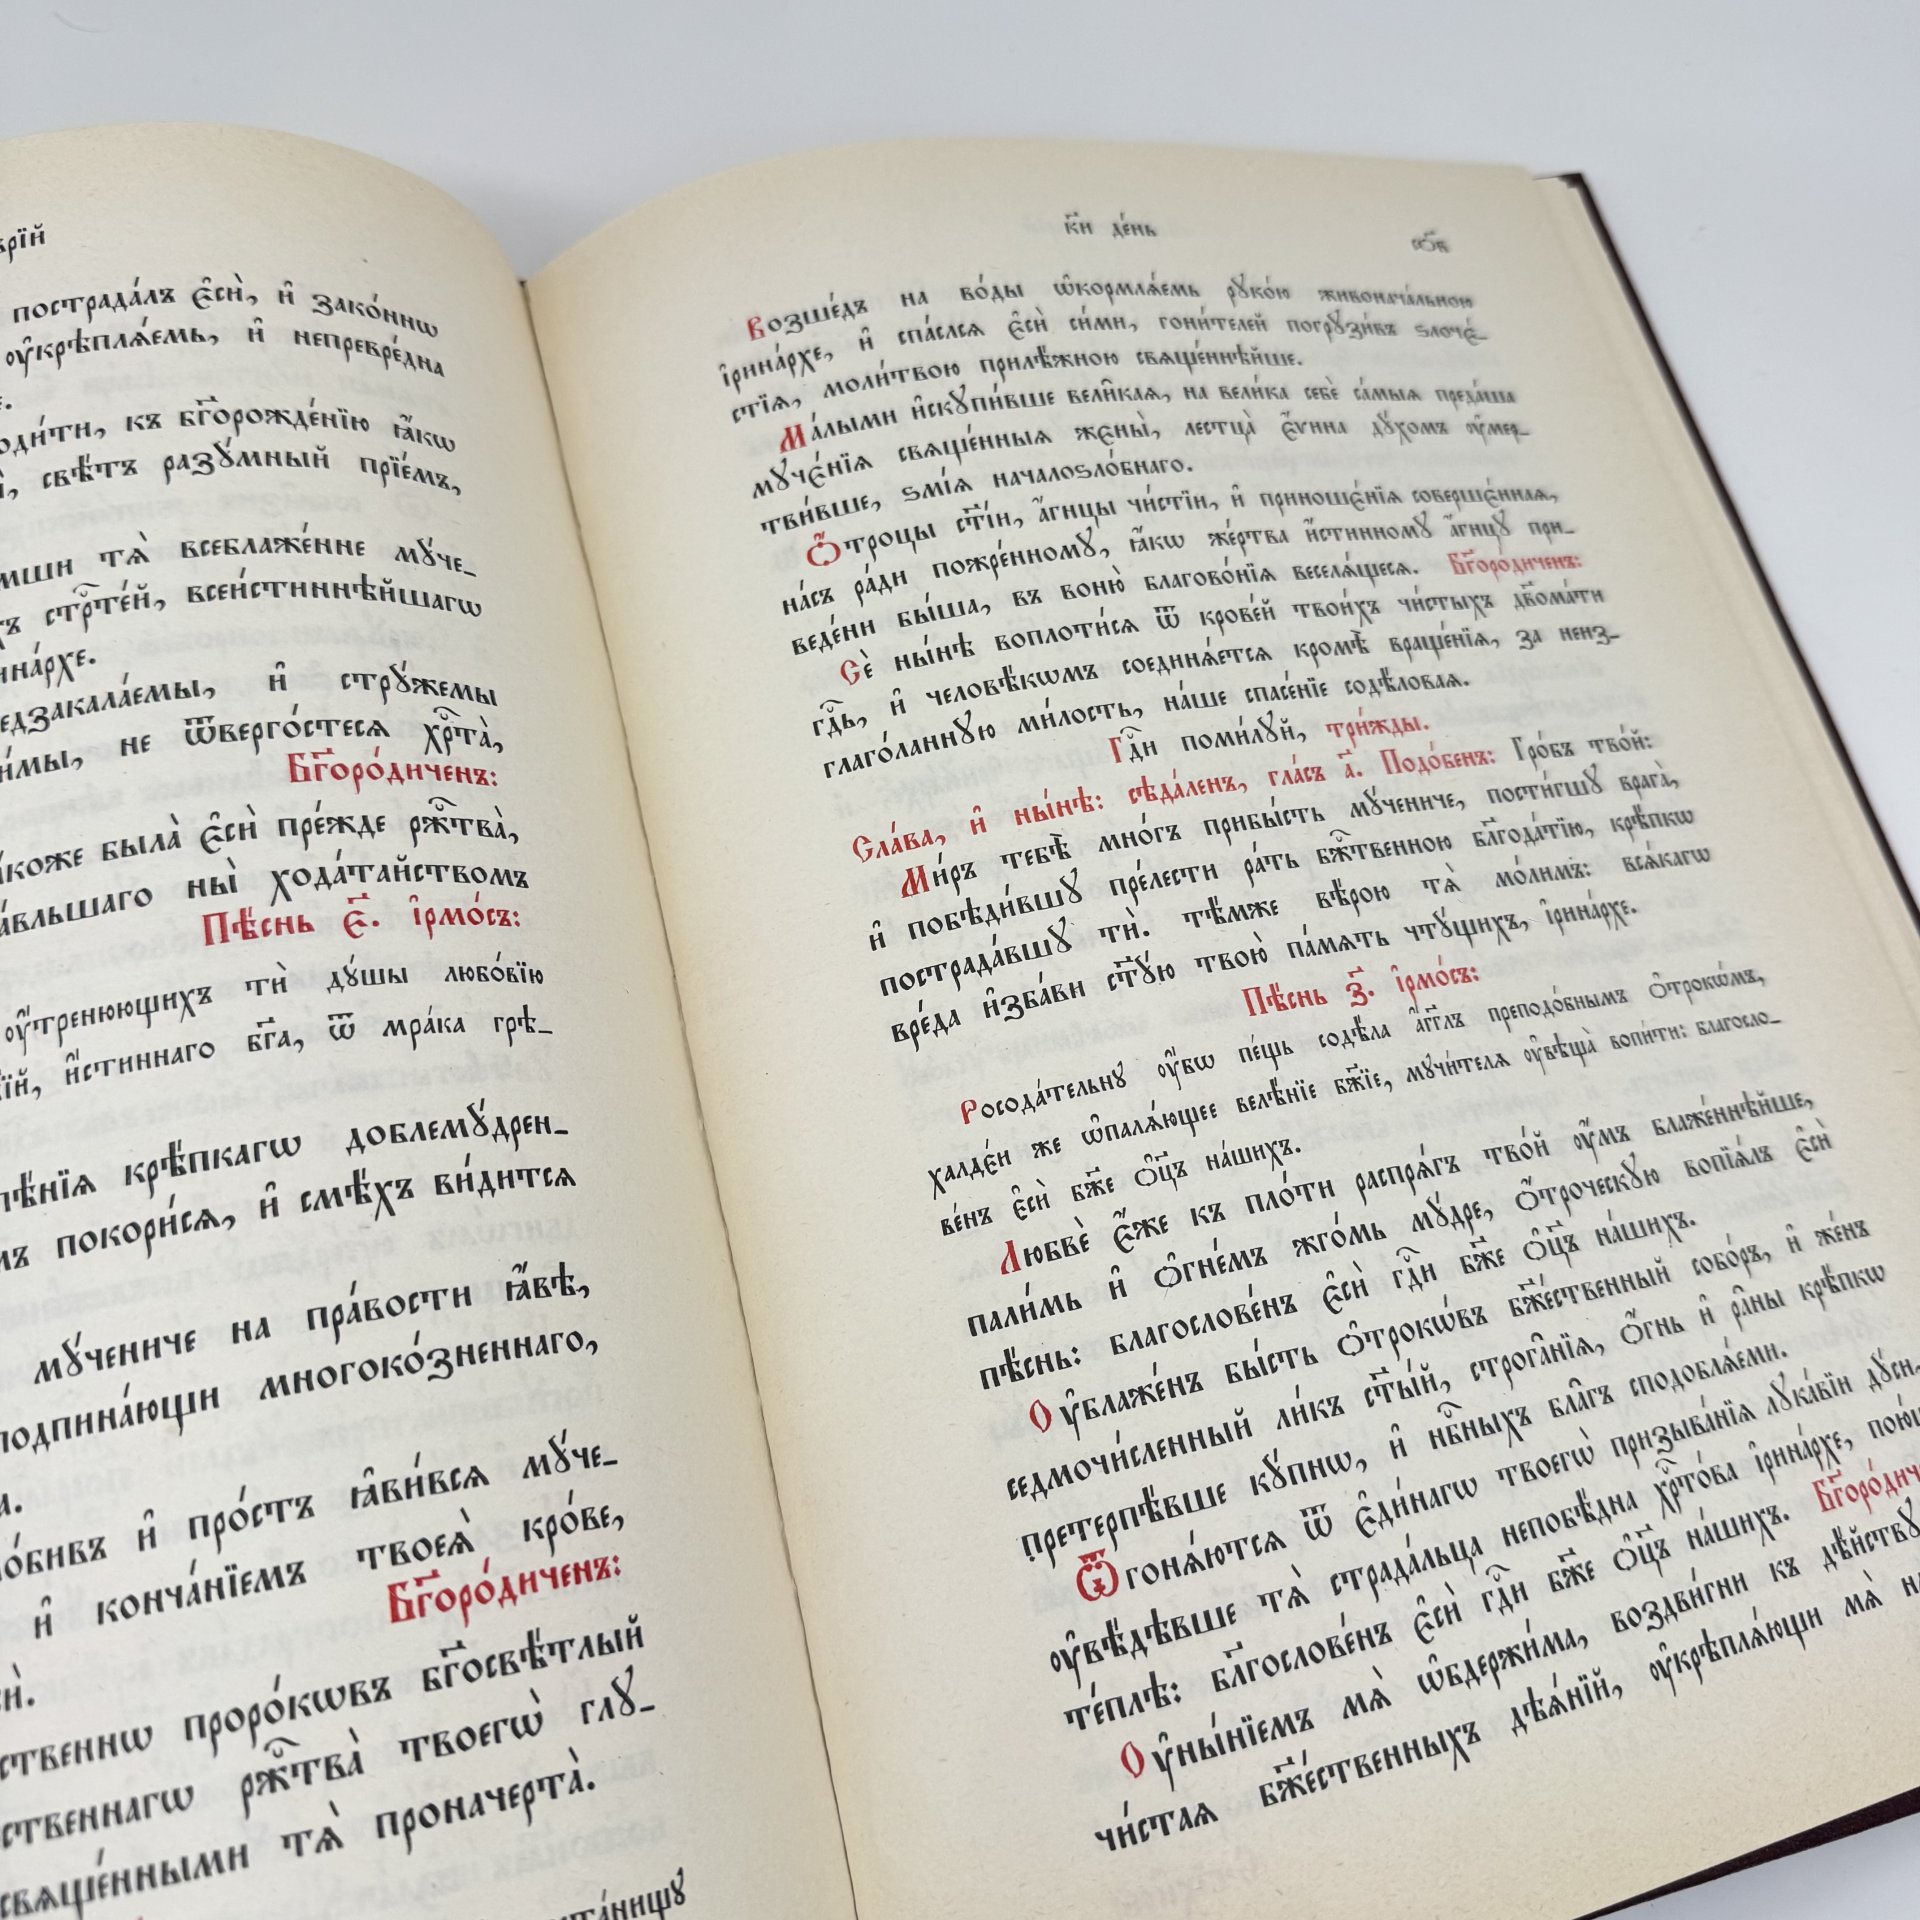 пострада́лъ є҆сѝ, и҆ зако́ннѡ
ᲂу҆крѣплѧ́емь, и҆ непревре́дна
къ бг҃орожде́нїю ꙗ҆́кѡ
свѣ́тъ разꙋ́мный прїе́мъ,
тѧ̀ всеблаже́нне мꙋ́че-
стрⷭ҇те́й, всеи́стиннѣйшагѡ
и҆ стрꙋ́жемы
не ѿверго́стесѧ хрⷭ҇та̀,
Бг҃оро́диченъ:
была̀ є҆сѝ пре́жде рж҇тва̀,
ны̀ хода́тайствомъ
Пѣ́снь є҃. і҆рмо́съ:
ᲂу҆́тренюющихъ тѝ дꙋ́шы любо́вїю
и҆́стиннаго бг҃а, ѿ мра́ка грѣ-
крѣ́пкагѡ доблемꙋ́дрен-
покори́сѧ, и҆ смѣ́хъ ви́дитсѧ
мꙋ́чениче на пра́вости ꙗ҆́вѣ,
многоко́зненнаго,
и҆ про́стъ ꙗ҆ви́всѧ мꙋ́че-
и҆ конча́нїемъ твоеѧ̀ кро́ве,
Бг҃оро́диченъ:
проро́кѡвъ бг҃освѣ́тлый
рж҇тва̀ твоегѡ̀ глꙋ-
тѧ̀ проначерта̀.
к҃и де́нь
со҃в
Возше́дъ на во́ды ѡ҆кормлѧ́емь рꙋко́ю живонача́льною
і҆рина́рхе, и҆ спа́слсѧ є҆сѝ си́ми, гони́телей погрꙋзи́въ ѕлоче́-
стїѧ, моли́твою прилѣ́жною свѧще́ннѣйше.
Ма́лыми и҆скꙋпи́вше вели̑каѧ, на вели́ка себѐ са́мыѧ преда́ша
мꙋчє́нїѧ свѧщє́нныѧ жєны̀, лестца̀ є҆́ѵнна дꙋ́хомъ ᲂу҆мер-
тви́вше, ѕмі́ѧ началоѕло́бнаго.
Ѻ҆́троцы ст҃і́и, а҆́гнцы чи́стїи, и҆ приношє́нїѧ совершє́ннаѧ,
на́съ ра́ди пожре́нномꙋ, ꙗ҆́кѡ же́ртва и҆́стинномꙋ а҆́гнцꙋ при-
веде́ни бы́ша, въ воню̀ благово́нїѧ веселѧ́щесѧ. Бг҃оро́диченъ:
Сѐ ны́нѣ воплоти́сѧ ѿ крове́й твои́хъ чи́стыхъ дв҃ома́ти
гдⷭ҇ь, и҆ человѣ́кѡмъ соединѧ́етсѧ кромѣ̀ враще́нїѧ, за неиз-
глаго́ланнꙋю ми́лость, на́ше спасе́нїе содѣ́ловаѧ.
Гдⷭ҇и поми́лꙋй, три́жды.
Сла́ва, и҆ ны́нѣ: сѣда́ленъ, гла́съ а҃. Подо́бенъ: Гро́бъ тво́й:
Ми́ръ тебѣ̀ мно́гъ прибы́сть мꙋ́чениче, пости́гшꙋ врага̀,
и҆ побѣди́вшꙋ пре́лести ра́ть бж҇твенною бл҃года́тїю, крѣ́пкѡ
пострада́вшꙋ тѝ. тѣ́мже вѣ́рою тѧ̀ мо́лимъ: всѧ́кагѡ
вре́да и҆зба́ви ст҃ꙋ́ю твою̀ па́мѧть чтꙋ́щихъ, і҆рина́рхе.
Пѣ́снь з҃. і҆рмо́съ:
Росода́тельнꙋ ᲂу҆́бѡ пе́щь содѣ́ла а҆́гг҃лъ преподо́бнымъ ѻ҆трокѡ́мъ,
халдє́и же ѡ҆палѧ́ющее велѣ́нїе бж҃їе, мꙋчи́телѧ ᲂу҆вѣща̀ вопи́ти: благосло-
ве́нъ є҆сѝ бж҃е ѻ҆ц҃ъ на́шихъ.
Любвѐ є҆́же къ пло́ти распрѧ́гъ тво́й ᲂу҆́мъ блаже́ннѣйше,
пали́мь и҆ ѻ҆гне́мъ жго́мь мꙋ́дре, ѻ҆́троческꙋю вопїѧ́лъ є҆сѝ
пѣ́снь: благослове́нъ є҆сѝ гдⷭ҇и бж҃е ѻ҆ц҃ъ на́шихъ.
Оу҆блаже́нъ бы́сть ѻ҆трокѡ́въ бж҃е́ственный собо́ръ, и҆ же́нъ
седмочи́сленный ли́къ ст҃ы́й, строга̑нїѧ, ѻ҆́гнь и҆ ра̑ны крѣ́пкѡ
претерпѣ́вше кꙋ́пнѡ, и҆ нбⷭ҇ныхъ бла̑гъ сподоблѧ́еми.
Ѿгонѧ́ютсѧ ѿ є҆ди́нагѡ твоегѡ̀ призыва́нїѧ лꙋка́вїи дꙋ́си,
ᲂу҆вѣ́дѣвше тѧ̀ страда́льца непобѣ́дна хрⷭ҇то́ва і҆рина́рхе,
те́плѣ: бл҃гослове́нъ є҆сѝ гдⷭ҇и бж҃е ѻ҆ц҃ъ на́шихъ.
Оу҆ны́нїемъ мѧ̀ ѡ҆бдержи́ма, воздви́гни къ
чи́стаѧ бж҃е́ственныхъ дѣѧ́нїй, ᲂу҆крѣплѧ́ющи мѧ̀